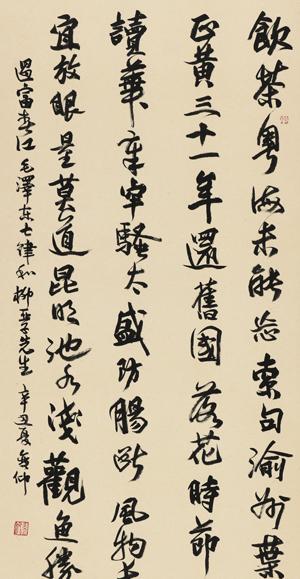 飲茶粵海未能忘索句渝州葉
正黃三十一年還舊國落花時節
讀華章牢騷太盛防腸斷風物長
宜放眼量莫道昆明池水淺觀魚勝
過富春江 毛澤東七律和柳亞子先生 辛丑夏